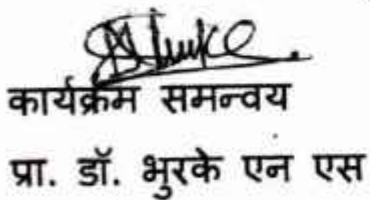 कार्यक्रम समन्वय
प्रा. डॉ. भुरके एन एस